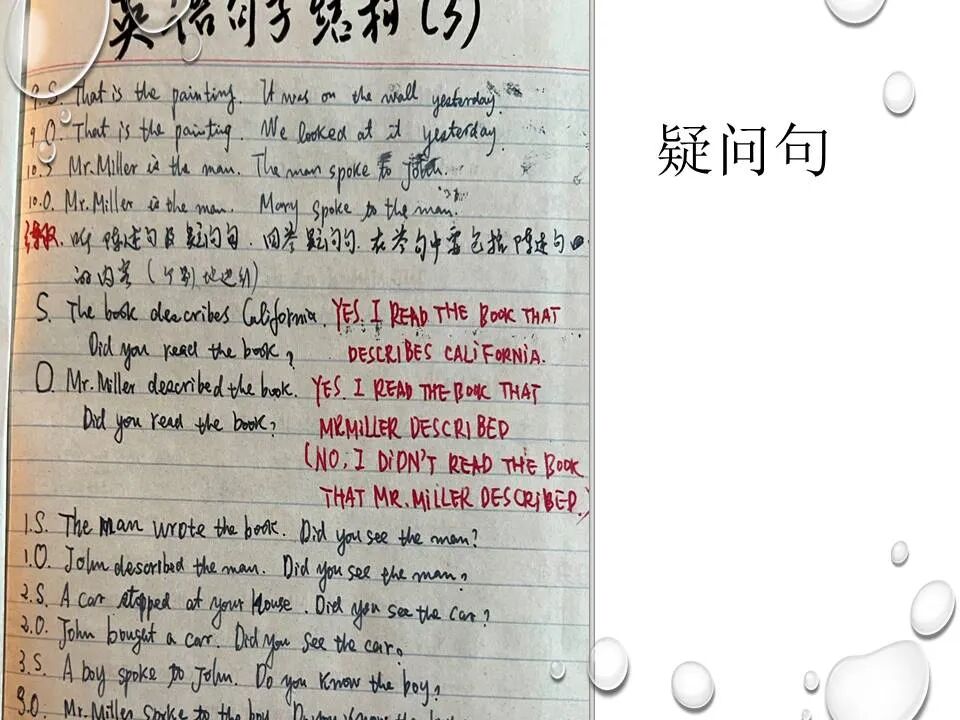 英语句子结构(3)
9.S. That is the painting. It was on the wall yesterday.
9.O. That is the painting. We looked at it yesterday.
10.S Mr. Miller is the man. The man spoke to John.
10.O. Mr. Miller is the man. Mary spoke to the man.
练习. 听陈述句及疑问句. 回答疑问句. 在答句中要包括陈述句
的内容 (个别地进行)
S. The book describes California. YES. I READ THE BOOK THAT
Did you read the book? DESCRIBES CALIFORNIA.
O. Mr. Miller described the book. YES. I READ THE BOOK THAT
Did you read the book? MR.MILLER DESCRIBED
(NO, I DIDN'T READ THE BOOK
THAT MR. MILLER DESCRIBED.)
1.S. The man wrote the book. Did you see the man?
1.O. John described the man. Did you see the man?
2.S. A car stopped at your house. Did you see the car?
2.O. John bought a car. Did you see the car?
3.S. A boy spoke to John. Do you know the boy?
3.O. Mr. Miller spoke to the boy. Do you know the boy
疑问句